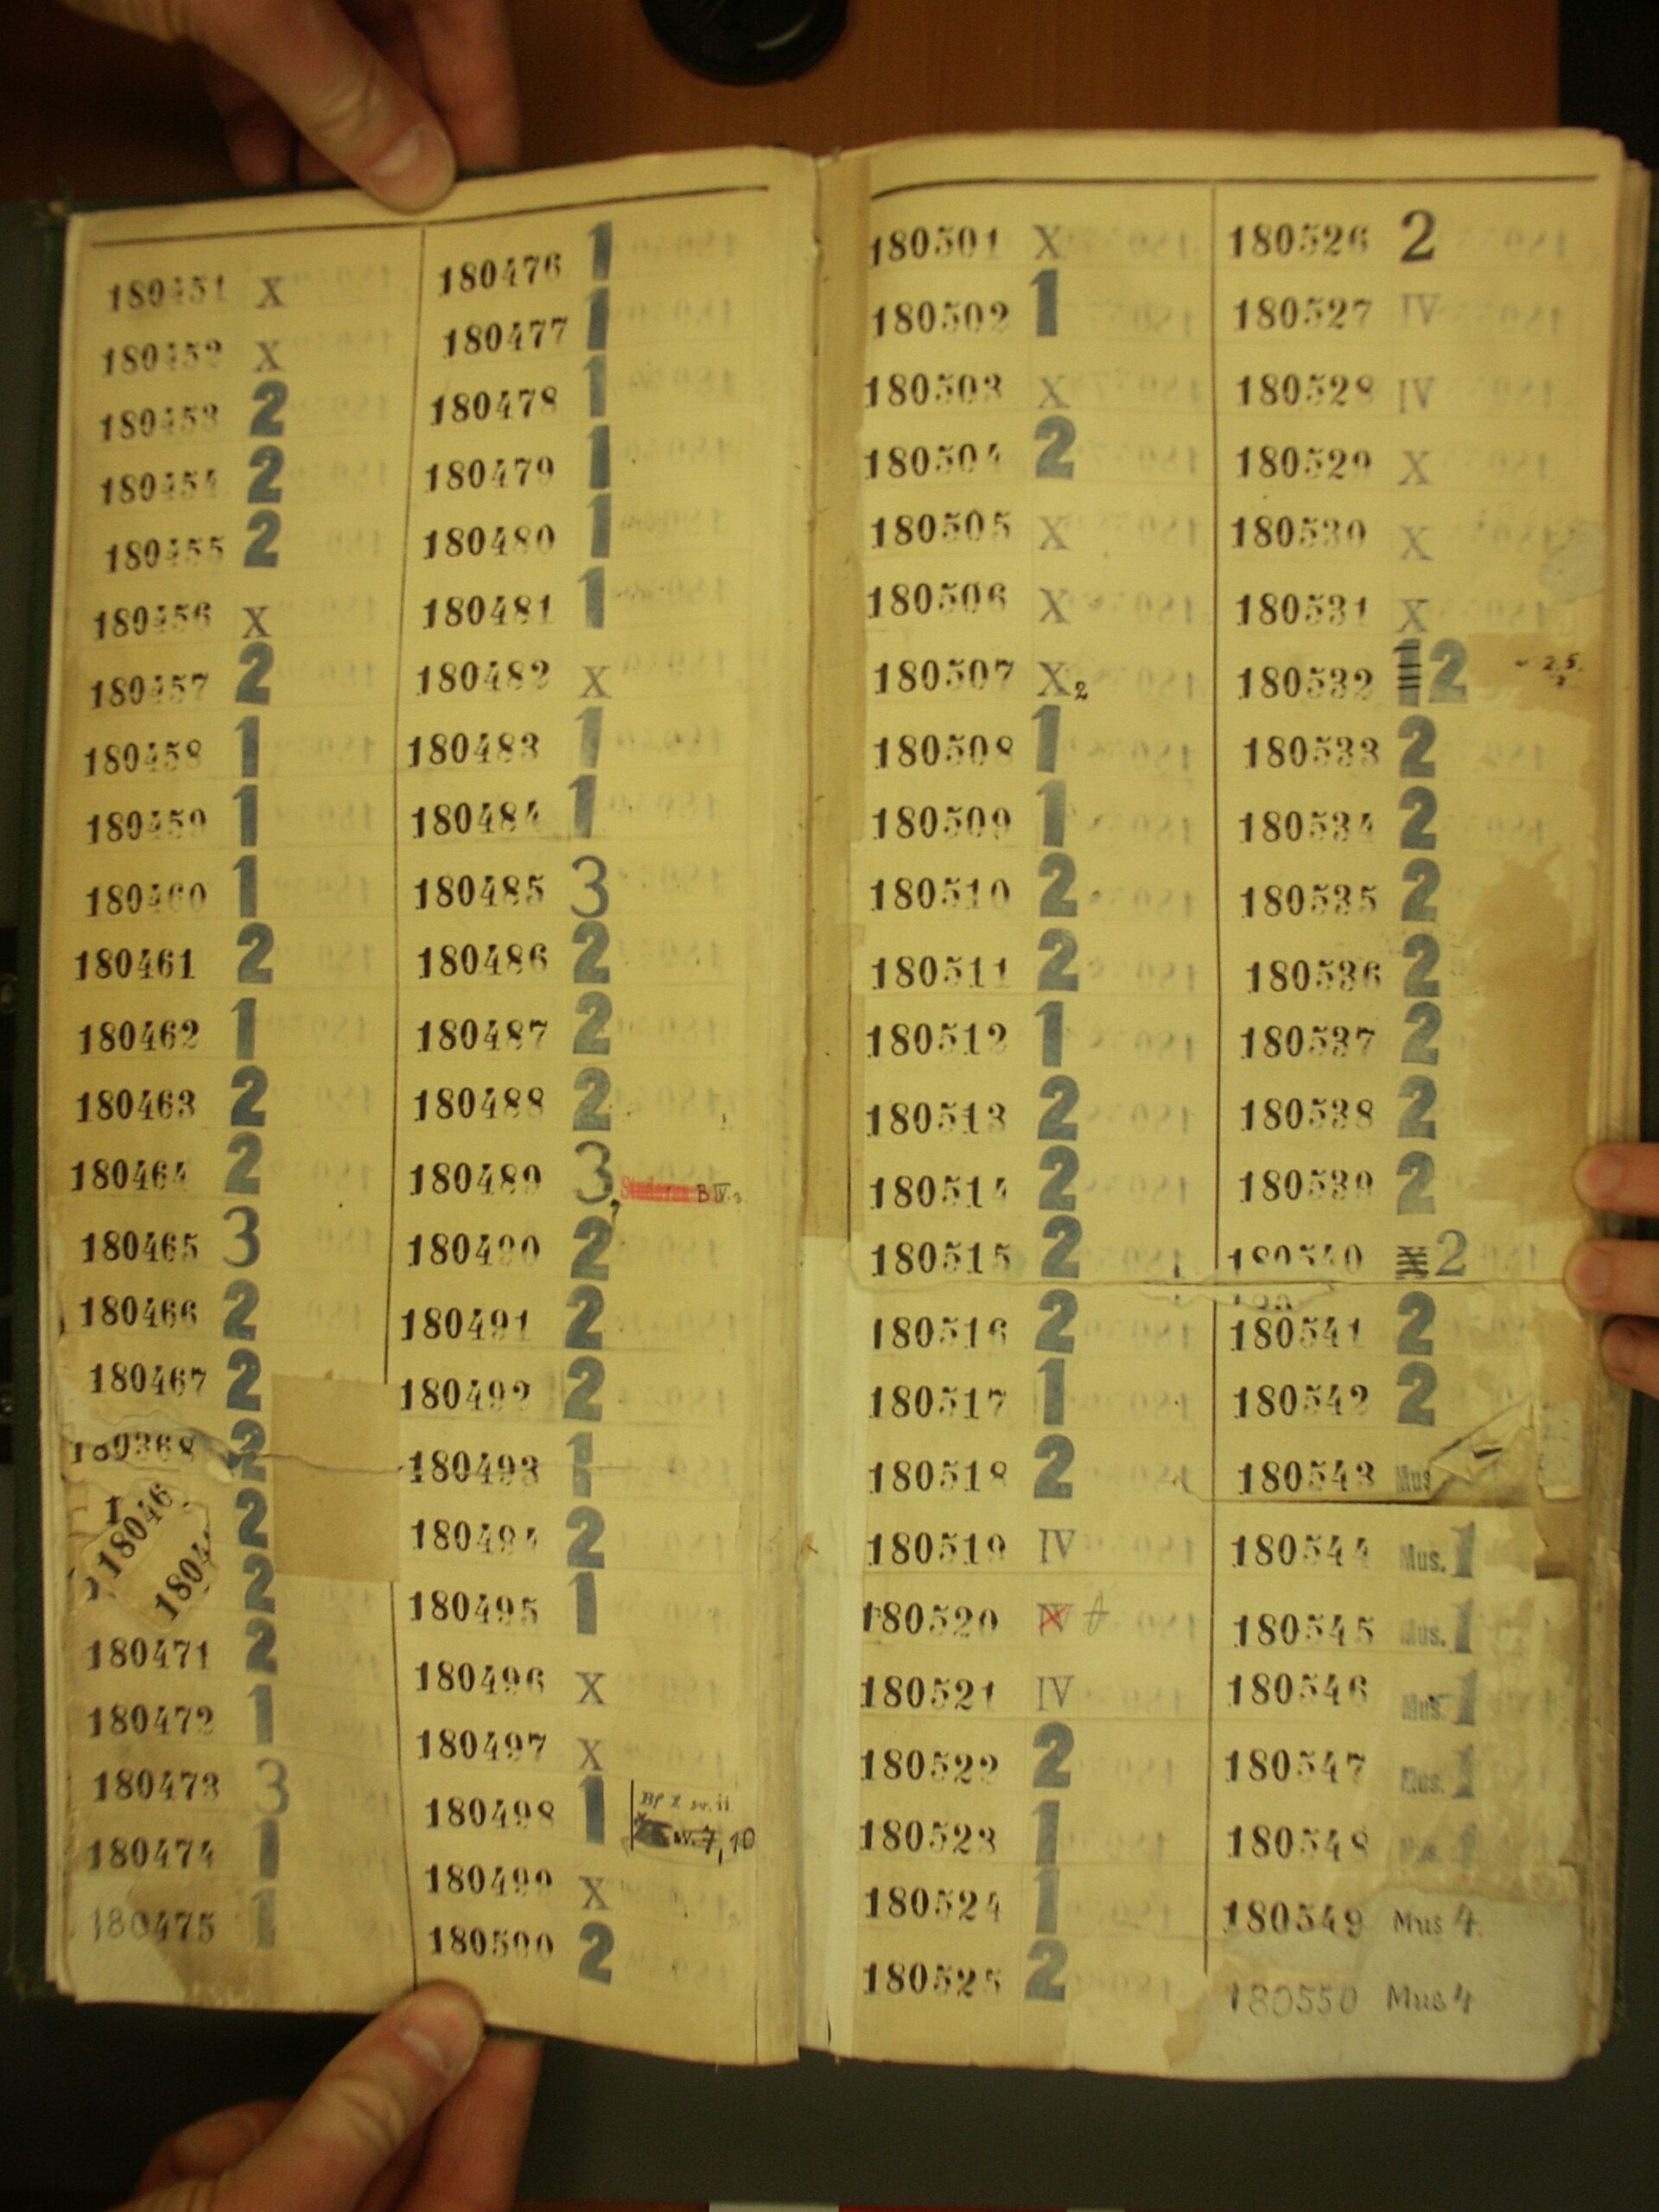 180451 X
180452 X
180453 2
180454 2
180455 2
180456 X
180457 2
180458 1
180459 1
180460 1
180461 2
180462 1
180463 2
180464 2
180465 3
180466 2
180467 2
2
18046 2
1804 2
180471 2
180472 1
180473 3
180474 1
180475 1
180476 1
180477 1
180478 1
180479 1
180480 1
180481 1
180482 X
180483 1
180484 1
180485 3
180486 2
180487 2
180488 2
180489 3, B IV. 3
180490 2
180491 2
180492 2
180493 1
180494 2
180495 1
180496 X
180497 X
180498 1
7, 10
180499 X
180500 2
180501 X
180502 1
180503 X
180504 2
180505 X
180506 X
180507 X 2
180508 1
180509 1
180510 2
180511 2
180512 1
180513 2
180514 2
180515 2
180516 2
180517 1
180518 2
180519 IV
180520 IV
180521 IV
180522 2
180523 1
180524 1
180525 2
180526 2
180527 IV
180528 IV
180529 X
180530 X
180531 X
180532 1 2
180533 2
180534 2
180535 2
180536 2
180537 2
180538 2
180539 2
180540 X 2
180541 2
180542 2
180543 Mus
180544 Mus. 1
180545 Mus. 1
180546 Mus. 1
180547 Mus. 1
180548
180549 Mus 4
180550 Mus 4